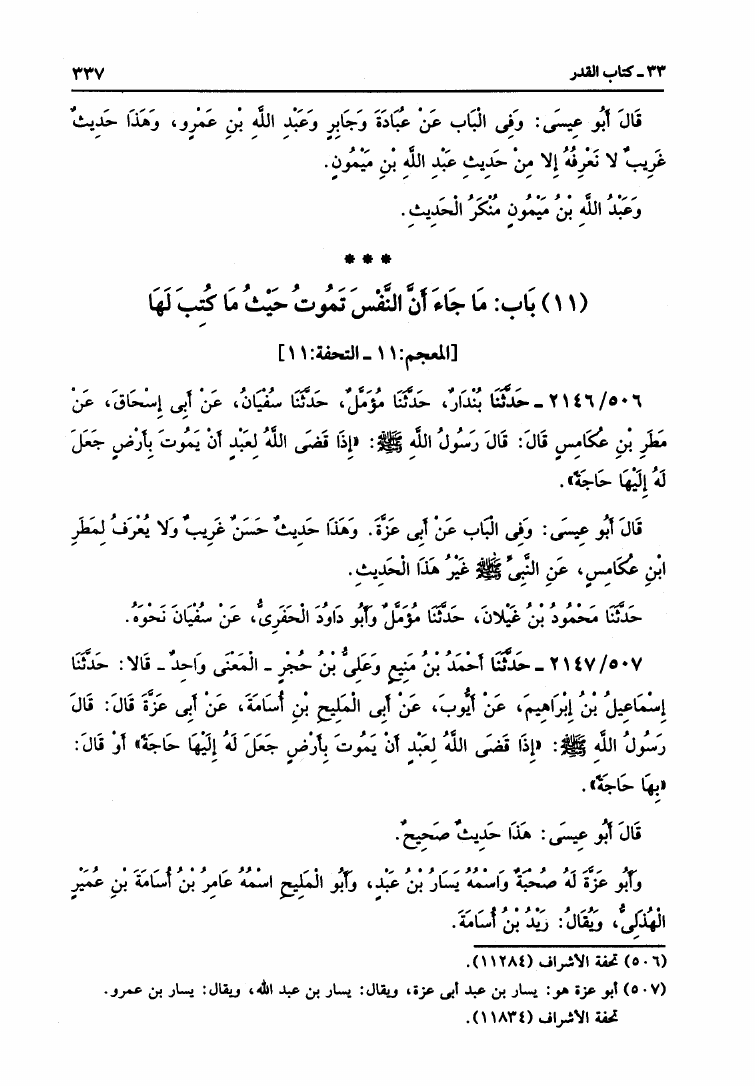 ٣٣ ـ كتاب القدر ٣٣٧
قَالَ أَبُو عِيسَى: وَفِى الْبَاب عَنْ عُبَادَةَ وَجَابِرٍ وَعَبْدِ اللَّهِ بْنِ عَمْرٍو، وَهَذَا حَدِيثٌ
غَرِيبٌ لا نَعْرِفُهُ إِلا مِنْ حَدِيثِ عَبْدِ اللَّهِ بْنِ مَيْمُونٍ.
وَعَبْدُ اللَّهِ بْنُ مَيْمُونٍ مُنْكَرُ الْحَدِيثِ.
* * *
(١١) بَاب: مَا جَاءَ أَنَّ النَّفْسَ تَمُوتُ حَيْثُ مَا كُتِبَ لَهَا
[المعجم:١١ ـ التحفة:١١]
٢١٤٦/٥٠٦ ـ حَدَّثَنَا بُنْدَارٌ، حَدَّثَنَا مُؤَمَّلٌ، حَدَّثَنَا سُفْيَانُ، عَنْ أَبِى إِسْحَاقَ، عَنْ
مَطَرِ بْنِ عُكَامِسٍ قَالَ: قَالَ رَسُولُ اللَّهِ ﷺ: «إِذَا قَضَى اللَّهُ لِعَبْدٍ أَنْ يَمُوتَ بِأَرْضٍ جَعَلَ
لَهُ إِلَيْهَا حَاجَةً».
قَالَ أَبُو عِيسَى: وَفِى الْبَاب عَنْ أَبِى عَزَّةَ. وَهَذَا حَدِيثٌ حَسَنٌ غَرِيبٌ وَلا يُعْرَفُ لِمَطَرِ
ابْنِ عُكَامِسٍ، عَنِ النَّبِىِّ ﷺ غَيْرُ هَذَا الْحَدِيثِ.
حَدَّثَنَا مَحْمُودُ بْنُ غَيْلانَ، حَدَّثَنَا مُؤَمَّلٌ وَأَبُو دَاوُدَ الْحَفَرِىُّ، عَنْ سُفْيَانَ نَحْوَهُ.
٢١٤٧/٥٠٧ ـ حَدَّثَنَا أَحْمَدُ بْنُ مَنِيعٍ وَعَلِىُّ بْنُ حُجْرٍ ـ الْمَعْنَى وَاحِدٌ ـ قَالا: حَدَّثَنَا
إِسْمَاعِيلُ بْنُ إِبْرَاهِيمَ، عَنْ أَيُّوبَ، عَنْ أَبِى الْمَلِيحِ بْنِ أُسَامَةَ، عَنْ أَبِى عَزَّةَ قَالَ: قَالَ
رَسُولُ اللَّهِ ﷺ: «إِذَا قَضَى اللَّهُ لِعَبْدٍ أَنْ يَمُوتَ بِأَرْضٍ جَعَلَ لَهُ إِلَيْهَا حَاجَةً» أَوْ قَالَ:
«بِهَا حَاجَةً».
قَالَ أَبُو عِيسَى: هَذَا حَدِيثٌ صَحِيحٌ.
وَأَبُو عَزَّةَ لَهُ صُحْبَةٌ وَاسْمُهُ يَسَارُ بْنُ عَبْدٍ، وَأَبُو الْمَلِيحِ اسْمُهُ عَامِرُ بْنُ أُسَامَةَ بْنِ عُمَيْرٍ
الْهُذَلِىُّ، وَيُقَالُ: زَيْدُ بْنُ أُسَامَةَ.
(٥٠٦) تحفة الأشراف (١١٢٨٤).
(٥٠٧) أبو عزة هو: يسار بن عبد أبى عزة، ويقال: يسار بن عبد الله، ويقال: يسار بن عمرو.
تحفة الأشراف (١١٨٣٤).